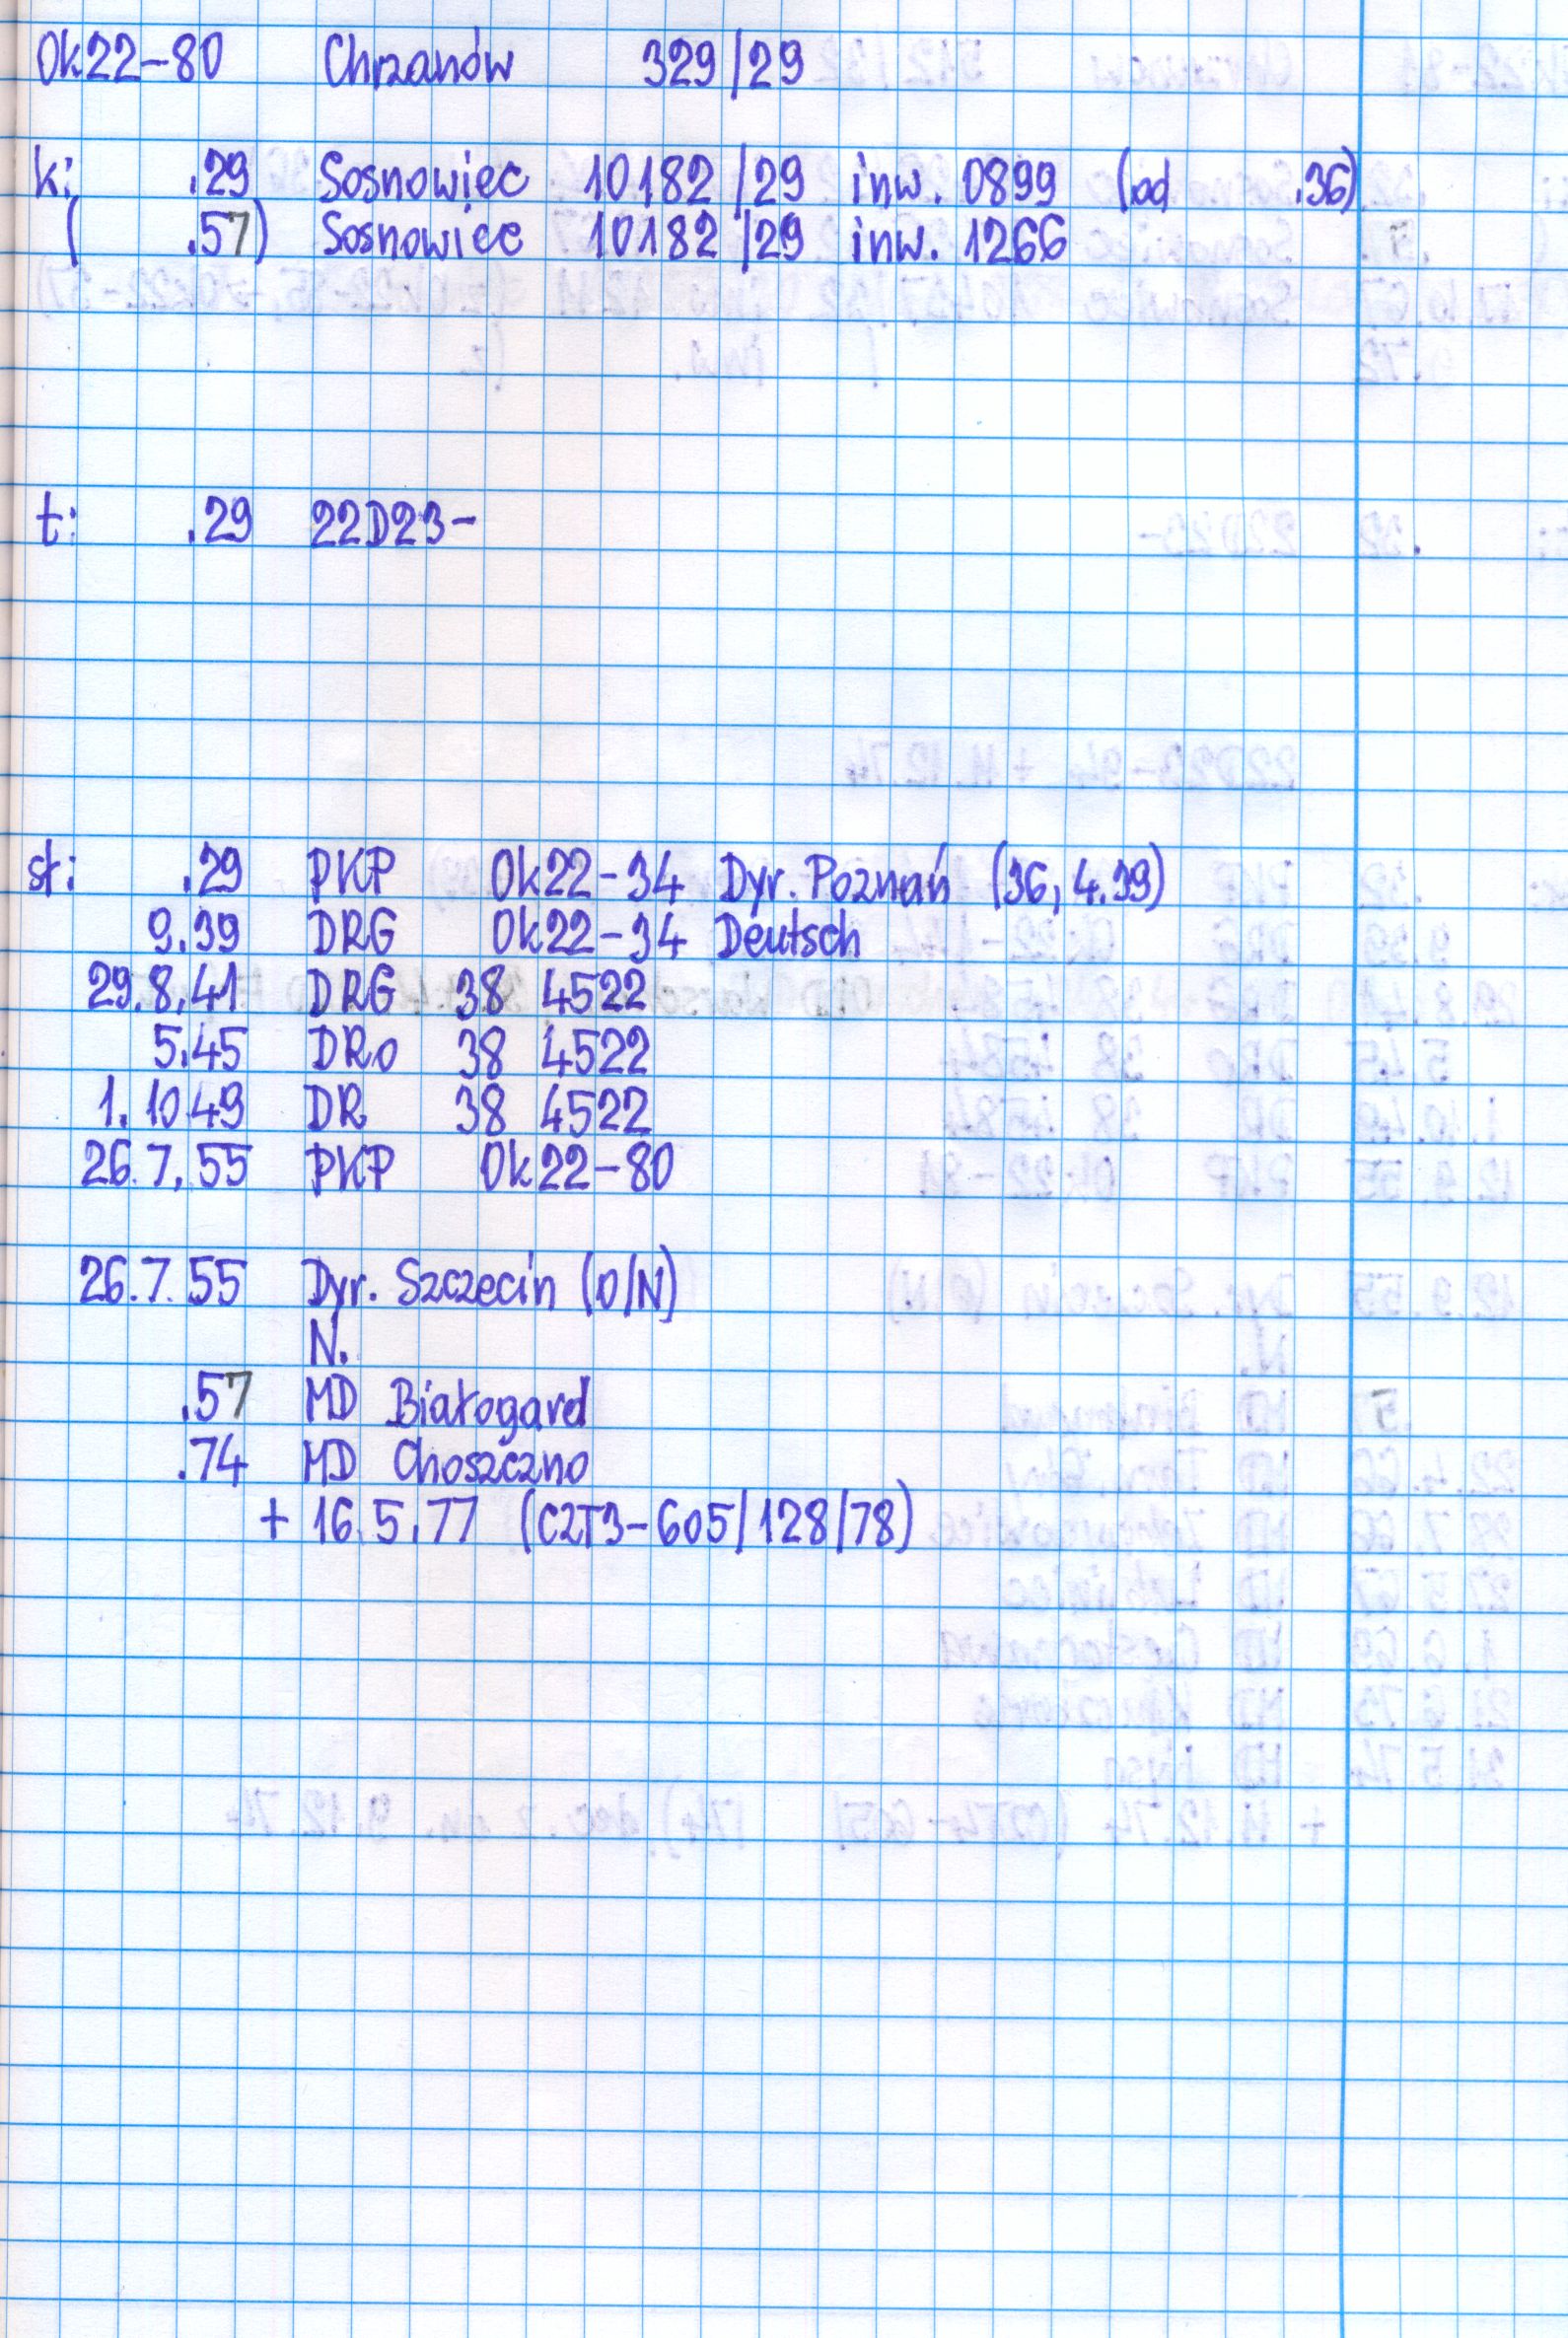 Ok22-80 Chrzanów 329/29
k: .29 Sosnowiec 10182/29 inw. 0899 (od .36)
( .57) Sosnowiec 10182/29 inw. 1266
t: .29 22D23-
st: .29 PKP Ok22-34 Dyr. Poznań (36, 4.39)
9.39 DRG Ok22-34 Deutsch
29.8.41 DRG 38 4522
5.45 DRo 38 4522
1.10.49 DR 38 4522
26.7.55 PKP Ok22-80
26.7.55 Dyr. Szczecin (O/N)
N.
.57 MD Białogard
.74 MD Choszczno
+ 16.5.77 (C2T3-605/128/78)